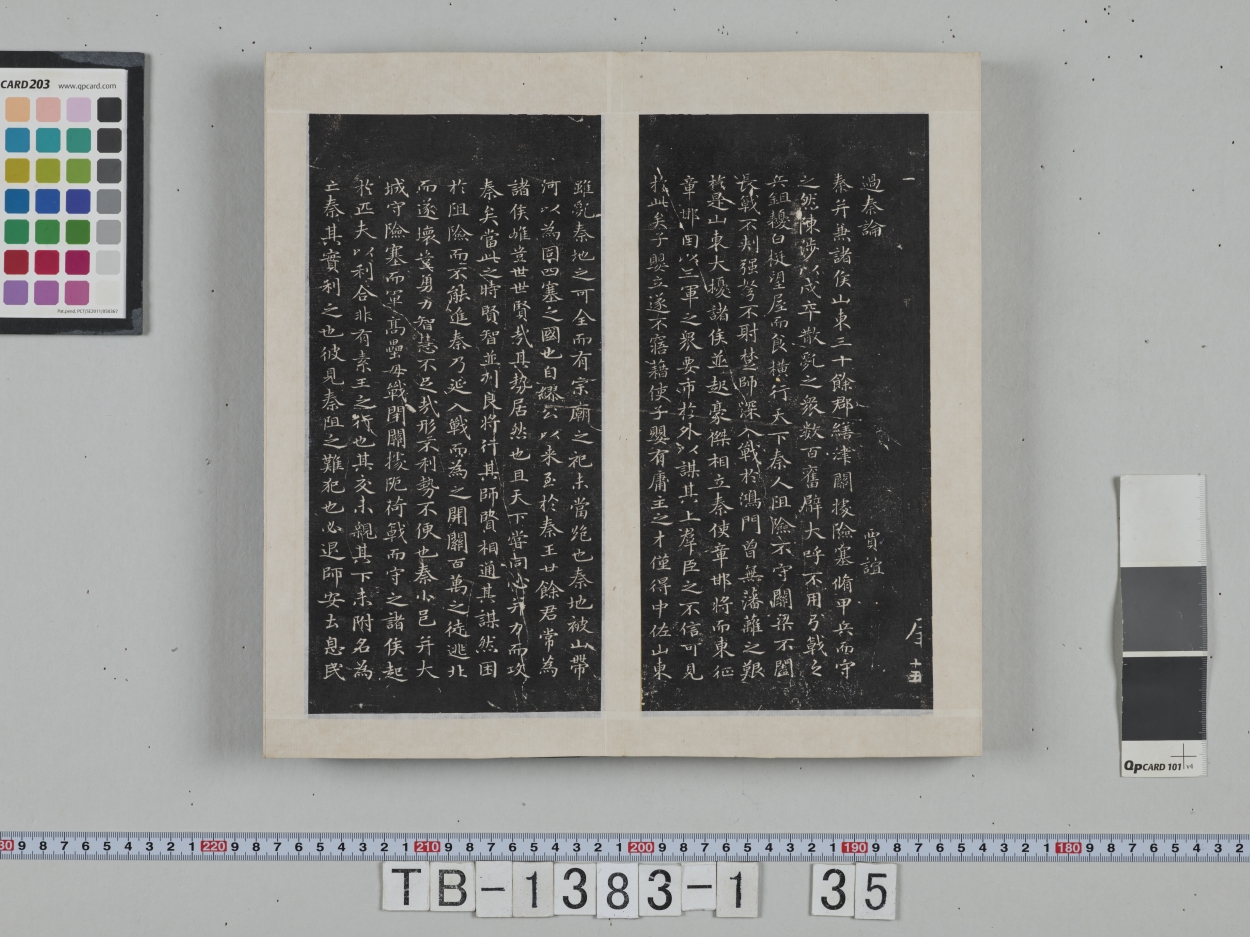 一
過秦論 賈誼
秦并兼諸侯山東三十餘郡繕津關據險塞脩甲兵而守
之然陳涉以戍卒散亂之衆數百奮臂大呼不用弓戟之
兵鉏耰白梃望屋而食橫行天下秦人阻險不守關梁不闔
長戟不刺强弩不射楚師深入戰於鴻門曾無藩籬之艱
於是山東大擾諸侯並起豪傑相立秦使章邯將而東征
章邯因以三軍之衆要市於外以謀其上羣臣之不信可見
於此矣子嬰立遂不寤藉使子嬰有庸主之才僅得中佐山東
雖亂秦地之可全而有宗廟之祀未當絕也秦地被山帶
河以為固四塞之國也自繆公以来至於秦王廿餘君常為
諸侯雄豈世世賢哉其勢居然也且天下嘗同心并力而攻
秦矣當此之時賢智並列良將行其師賢相通其謀然困
於阻險而不能進秦乃延入戰而為之開關百萬之徒逃北
而遂壞豈勇力智慧不足哉形不利勢不便也秦小邑并大
城守險塞而軍高壘毋戰閉關據阨荷戟而守之諸侯起
於匹夫以利合非有素王之行也其交未親其下未附名為
亡秦其實利之也彼見秦阻之難犯也必退師安土息民
CARD 203 www.qpcard.com
QPCARD 101 v4
230 9 8 7 6 5 4 3 2 1 220 9 8 7 6 5 4 3 2 1 210 9 8 7 6 5 4 3 2 1 200 9 8 7 6 5 4 3 2 1 190 9 8 7 6 5 4 3 2 1 180 9 8 7 6 5 4 3 2
TB-1383-1 35